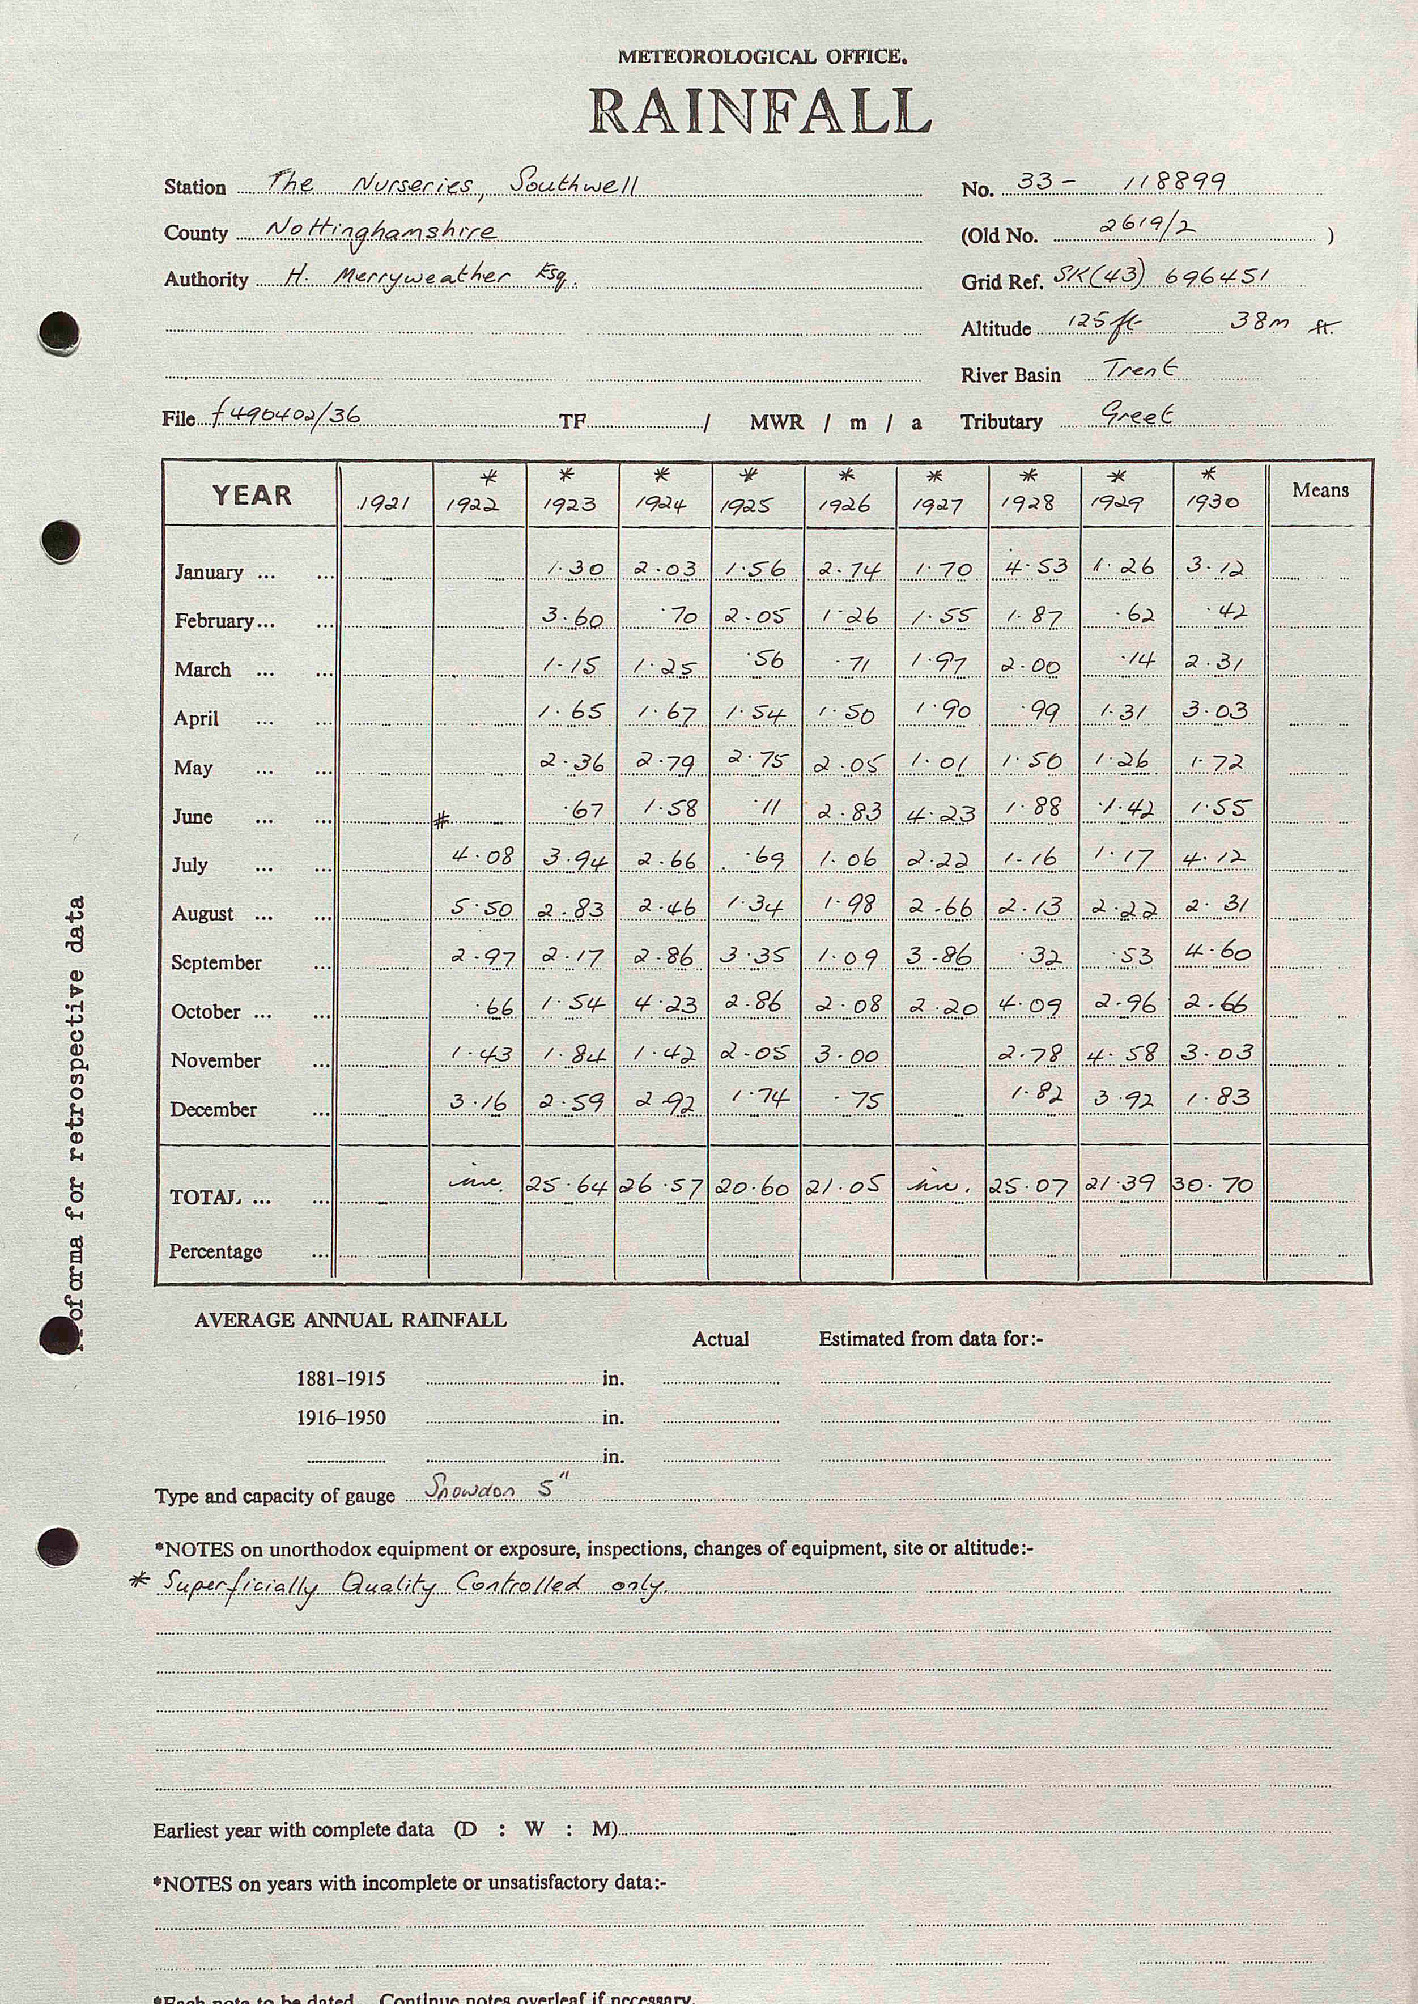 METEOROLOGICAL OFFICE.
RAINFALL
Station The Nurseries, Southwell No. 33- 118899
County Nottinghamshire (Old No. 2619/2 )
Authority H. Merryweather Esq. Grid Ref. SK(43) 696451
Altitude 125 ft 38m ft.
River Basin Trent
File f490402/36 TF / MWR / m / a Tributary Greet
* * * * * * * * *
YEAR 1921 1922 1923 1924 1925 1926 1927 1928 1929 1930 Means
January ... ... 1.30 2.03 1.56 2.74 1.70 4.53 1.26 3.12
February... ... 3.60 .70 2.05 1.26 1.55 1.87 .62 .42
March ... ... 1.15 1.25 .56 .71 1.97 2.00 .14 2.31
April ... ... 1.65 1.67 1.54 1.50 1.90 .99 1.31 3.03
May ... ... 2.36 2.79 2.75 2.05 1.01 1.50 1.26 1.72
June ... ... * .67 1.58 .11 2.83 4.23 1.88 1.42 1.55
July ... ... 4.08 3.94 2.66 .69 1.06 2.22 1.16 1.17 4.12
August ... ... 5.50 2.83 2.46 1.34 1.98 2.66 2.13 2.22 2.31
September ... 2.97 2.17 2.86 3.35 1.09 3.86 .32 .53 4.60
October ... ... .66 1.54 4.23 2.86 2.08 2.20 4.09 2.96 2.66
November ... 1.43 1.84 1.42 2.05 3.00 2.78 4.58 3.03
December ... 3.16 2.59 2.92 1.74 .75 1.82 3.92 1.83
TOTAL ... ... inc. 25.64 26.57 20.60 21.05 inc. 25.07 21.39 30.70
Percentage ...
oforma for retrospective data
AVERAGE ANNUAL RAINFALL
Actual Estimated from data for:-
1881–1915 in.
1916–1950 in.
in.
Type and capacity of gauge Snowdon 5"
*NOTES on unorthodox equipment or exposure, inspections, changes of equipment, site or altitude:-
* Superficially Quality Controlled only.
Earliest year with complete data (D : W : M)
*NOTES on years with incomplete or unsatisfactory data:-
*Each note to be dated. Continue notes overleaf if necessary.